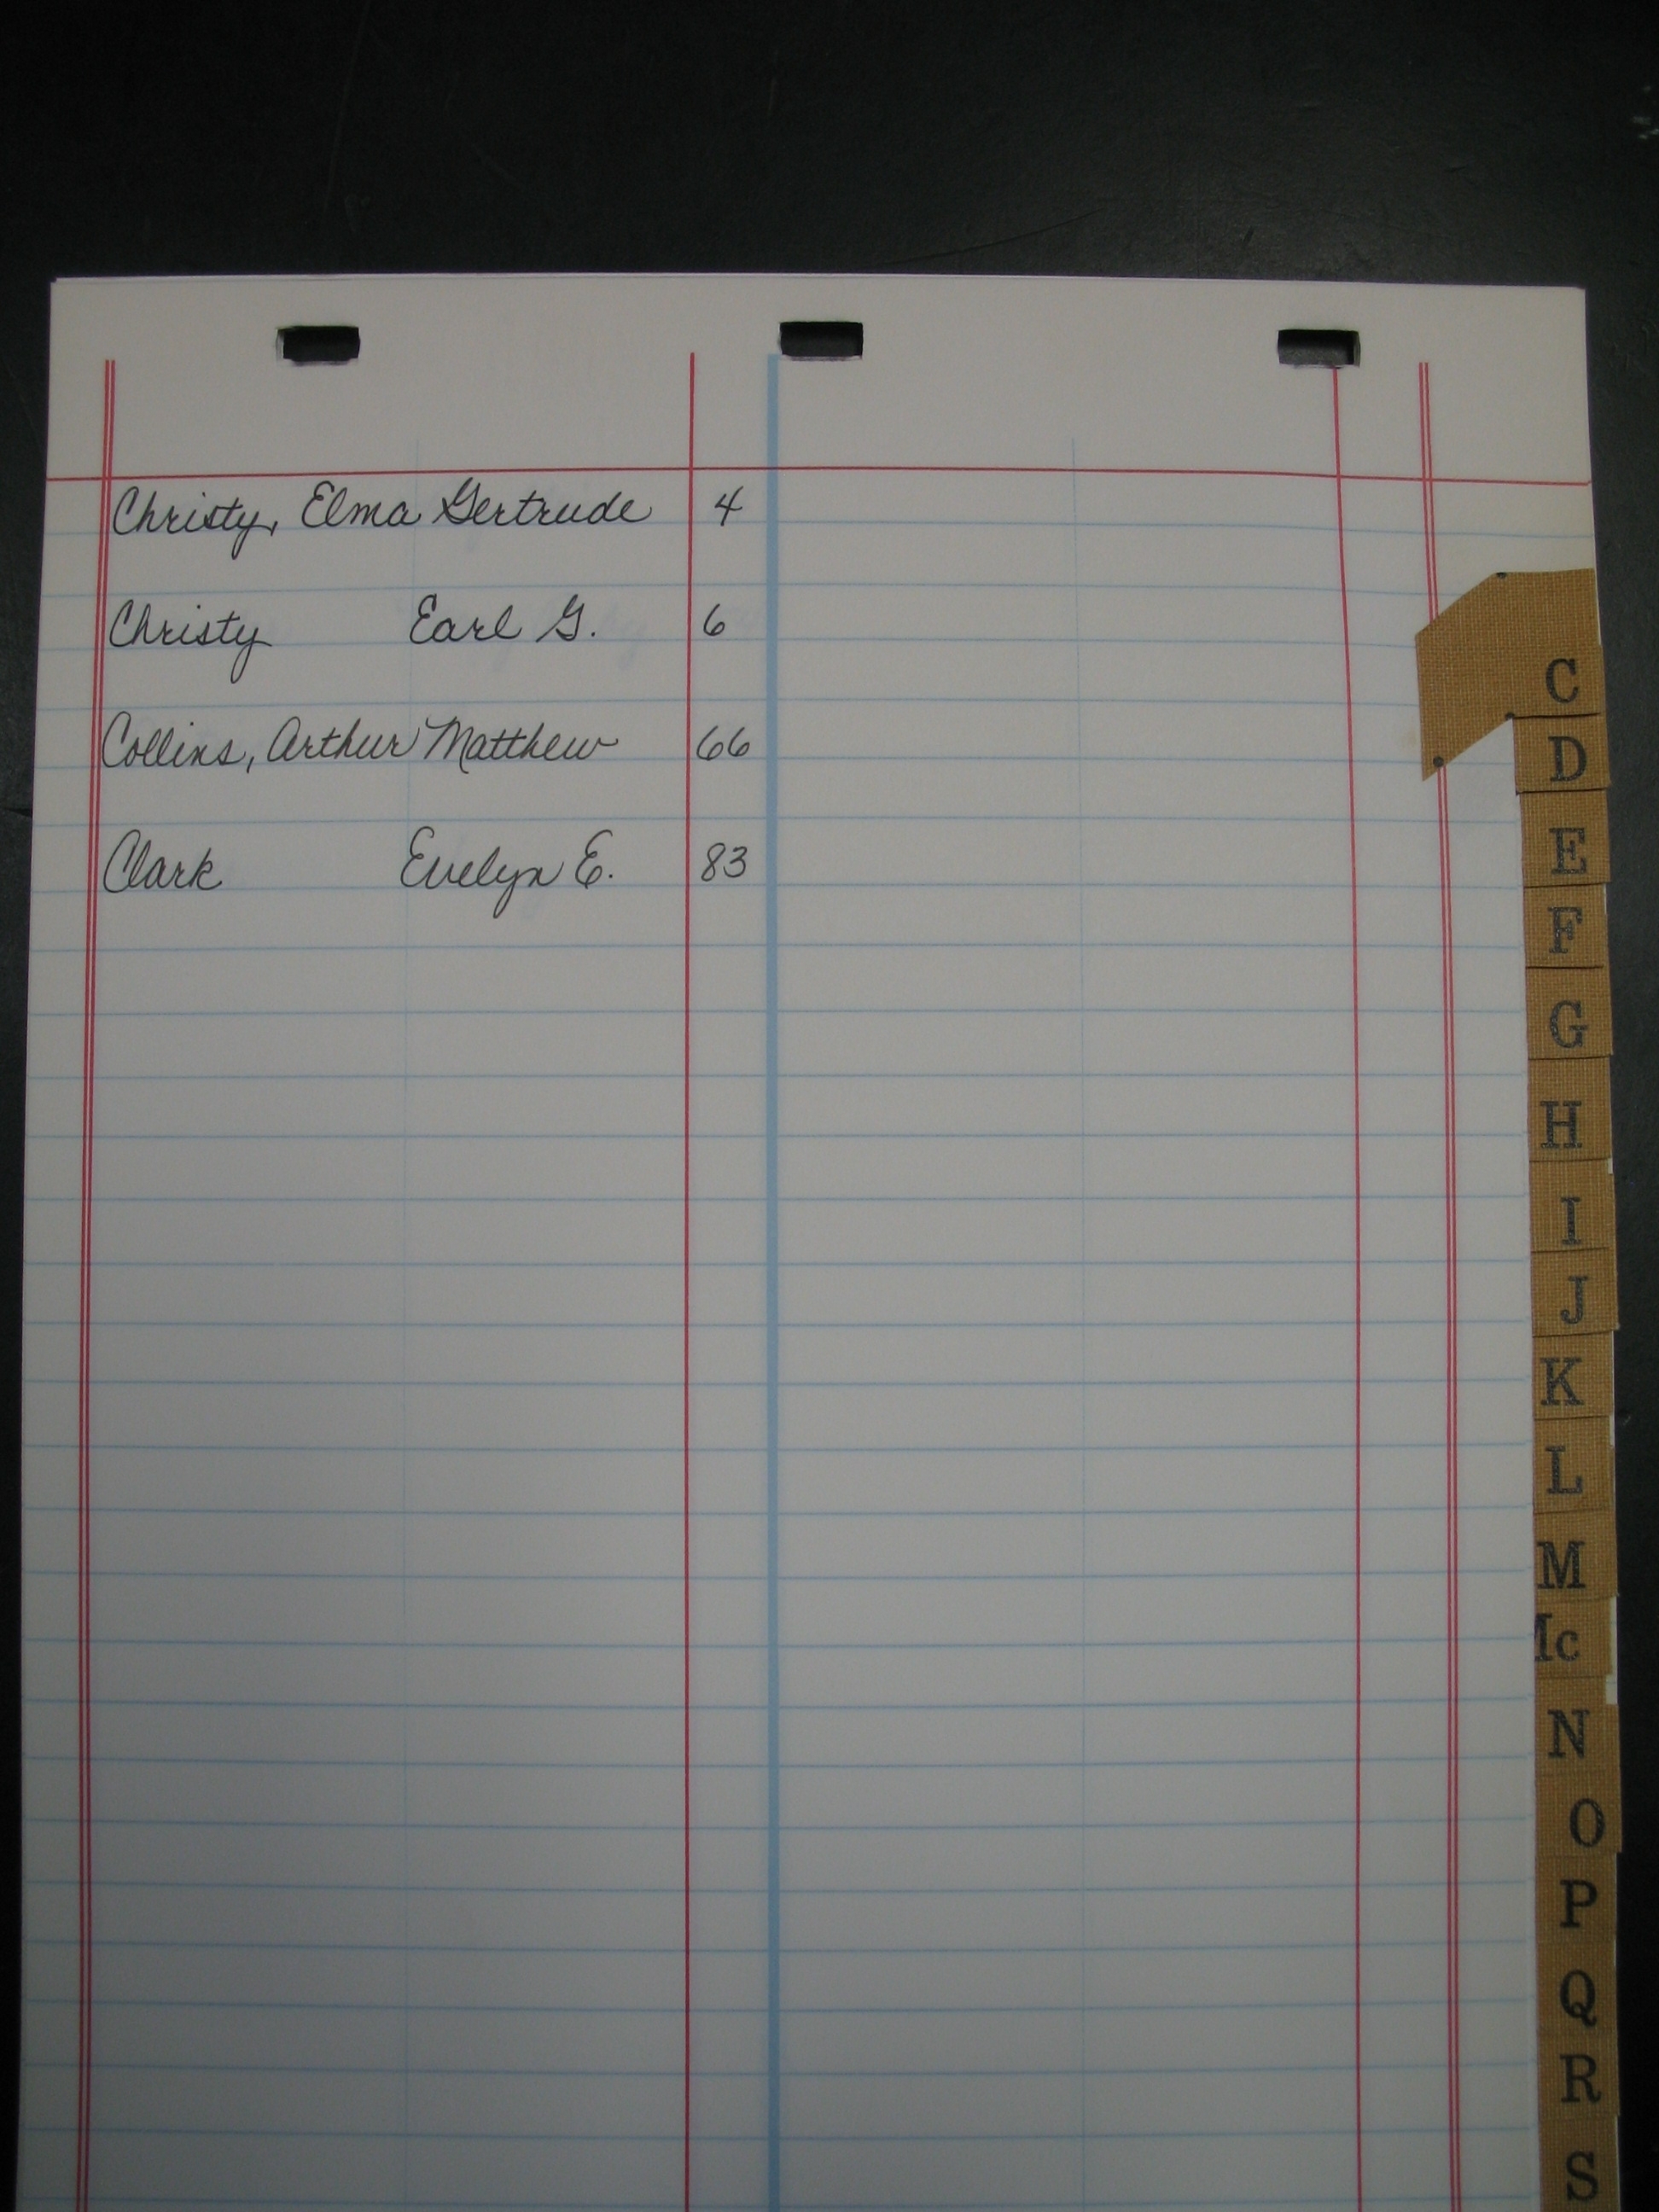 Christy, Elma Gertrude 4
Christy Earl G. 6
Collins, Arthur Matthew 66
Clark Evelyn E. 83
C
D
E
F
G
H
I
J
K
L
M
Mc
N
O
P
Q
R
S